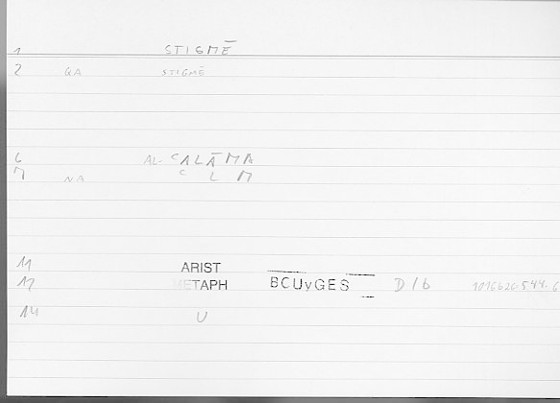 1 STIGMĒ
2 GA STIGMĒ
6 AL-ʿALĀMA
7 NA ʿLM
11 ARIST
12 METAPH BCUvGES D16
14 U